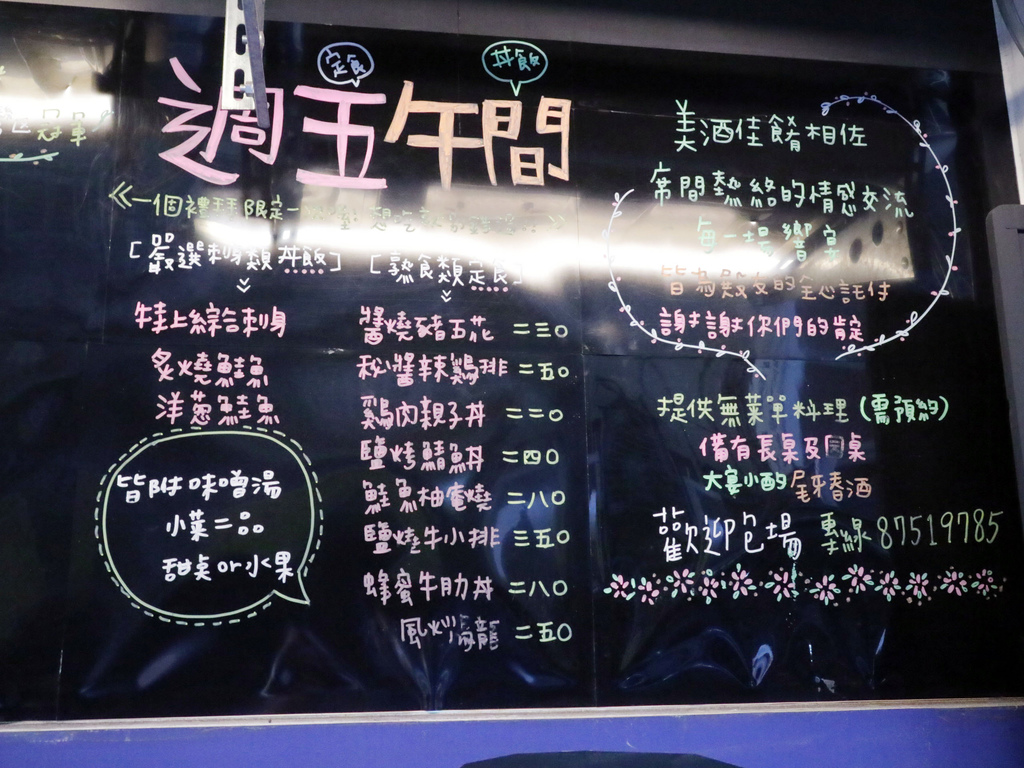 冠軍
定食
丼飯
週五午間
一個禮拜限定一
[嚴選刺身類丼飯]
牛上綜合刺身
炙燒鮭魚
洋蔥鮭魚
皆附味噌湯
小菜二品
甜桌or水果
[熟食類定食]
醬燒豬五花 二三〇
秘醬辣鷄排 二五〇
鷄肉親子丼 二二〇
鹽烤鯖魚丼 二四〇
鮭魚柚庵燒 二八〇
鹽燒牛小排 三五〇
蜂蜜牛肋丼 二八〇
風 龍 二五〇
美酒佳餚相佐
席間熱絡的情感交流
每一場饗宴
皆為 的全心託付
謝謝你們的肯定
提供無菜單料理(需預約)
備有長桌及圓桌
大宴小酌尾牙春酒
歡迎包場 專線87519785